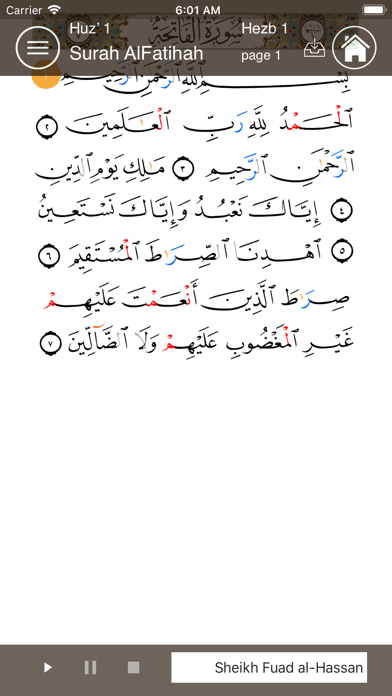 Carrier 6:01 AM
Huz’ 1 Hezb 1
Surah AlFatihah page 1
سُورَةُ الْفَاتِحَةِ
بِسْمِ ٱللَّهِ ٱلرَّحْمَٰنِ ٱلرَّحِيمِ ١
ٱلْحَمْدُ لِلَّهِ رَبِّ ٱلْعَٰلَمِينَ ٢
ٱلرَّحْمَٰنِ ٱلرَّحِيمِ ٣ مَٰلِكِ يَوْمِ ٱلدِّينِ
٤ إِيَّاكَ نَعْبُدُ وَإِيَّاكَ نَسْتَعِينُ
٥ ٱهْدِنَا ٱلصِّرَٰطَ ٱلْمُسْتَقِيمَ ٦
صِرَٰطَ ٱلَّذِينَ أَنْعَمْتَ عَلَيْهِمْ
غَيْرِ ٱلْمَغْضُوبِ عَلَيْهِمْ وَلَا ٱلضَّآلِّينَ ٧
Sheikh Fuad al-Hassan